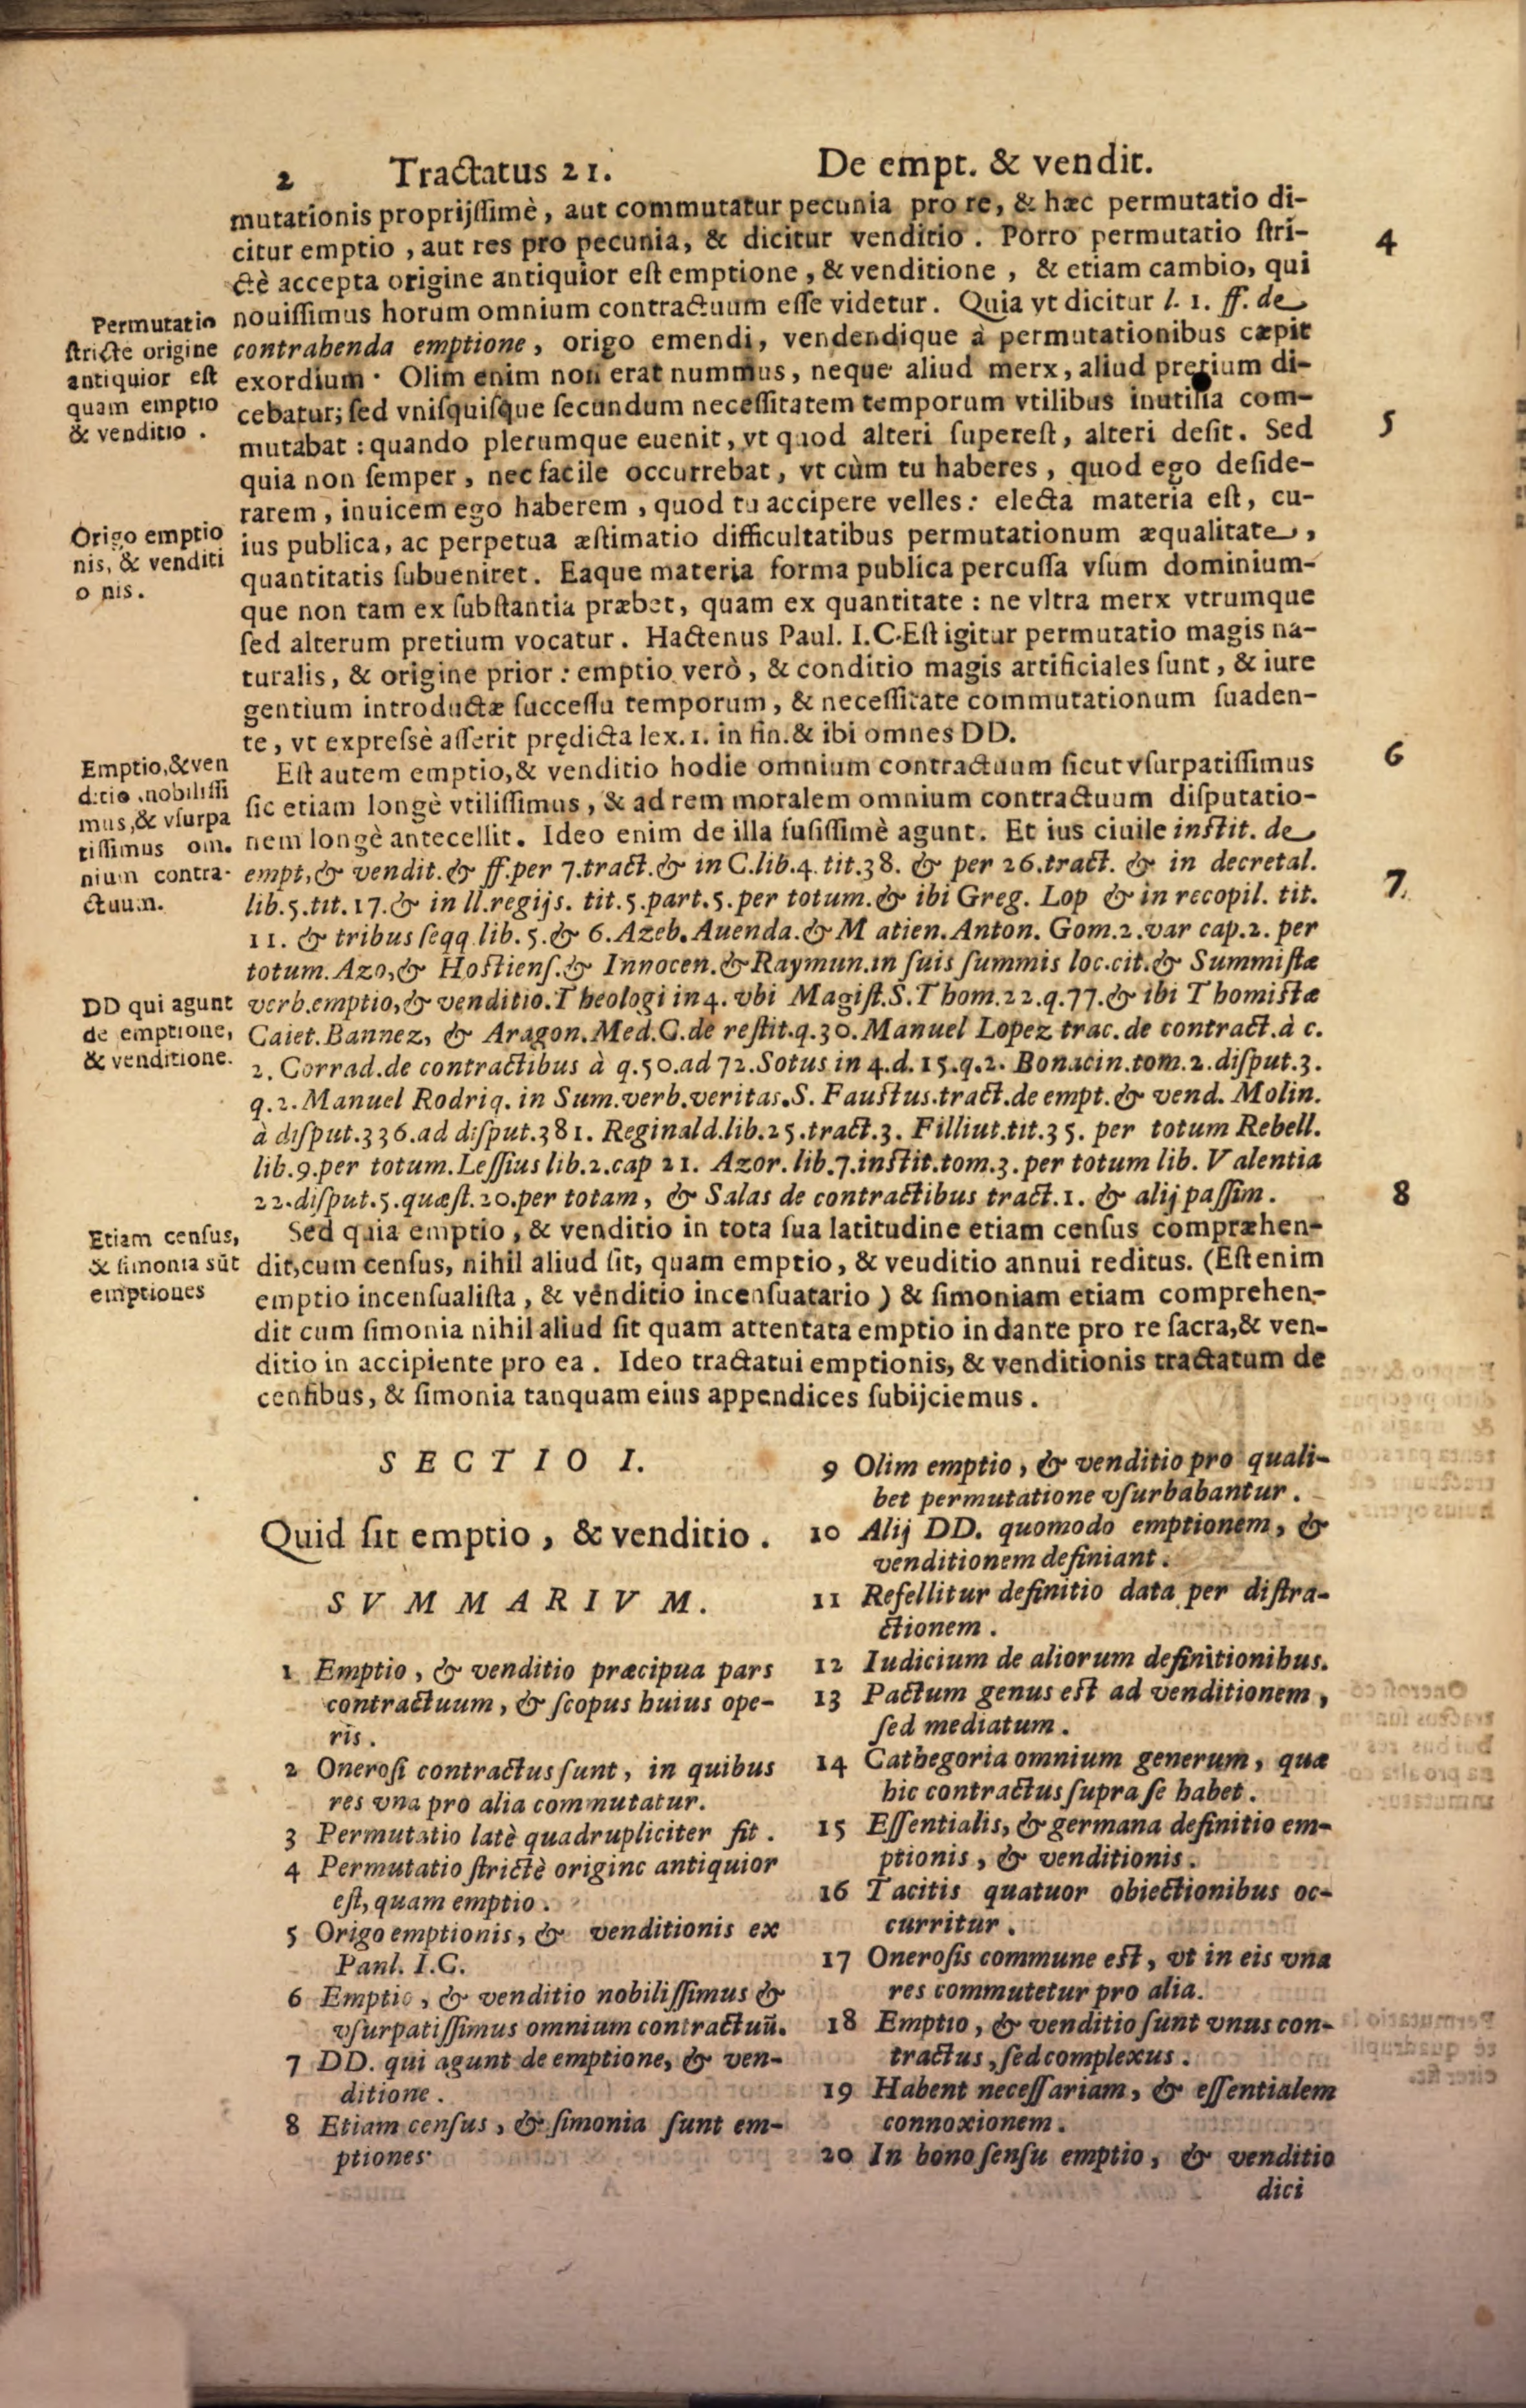 2 Tractatus 21. De empt. & vendit.
mutationis proprijſſimè, aut commutatur pecunia pro re, & hæc permutatio di-
citur emptio, aut res pro pecunia, & dicitur venditio. Porro permutatio ſtri-
ctè accepta origine antiquior eſt emptione, & venditione, & etiam cambio, qui
nouiſſimus horum omnium contractuum eſſe videtur. Quia vt dicitur l. 1. ff. de
contrahenda emptione, origo emendi, vendendique à permutationibus cæpit
exordium. Olim enim non erat nummus, neque aliud merx, aliud pretium di-
cebatur; ſed vniſquiſque ſecundum neceſſitatem temporum vtilibus inutilia com-
mutabat: quando plerumque euenit, vt quod alteri ſupereſt, alteri deſit. Sed
quia non ſemper, nec facile occurrebat, vt cùm tu haberes, quod ego deſide-
rarem, inuicem ego haberem, quod tu accipere velles: electa materia eſt, cu-
ius publica, ac perpetua æſtimatio difficultatibus permutationum æqualitate,
quantitatis ſubueniret. Eaque materia forma publica percuſſa vſum dominium-
que non tam ex ſubſtantia præbet, quam ex quantitate: ne vltra merx vtrumque
ſed alterum pretium vocatur. Hactenus Paul. I.C. Eſt igitur permutatio magis na-
turalis, & origine prior: emptio verò, & conditio magis artificiales ſunt, & iure
gentium introductæ ſucceſſu temporum, & neceſſitate commutationum ſuaden-
te, vt expreſsè aſſerit prędicta lex. 1. in fin. & ibi omnes DD.
4
5
Permutatio
ſtricte origine
antiquior eſt
quam emptio
& venditio.
Origo emptio
nis, & venditi
o nis.
Eſt autem emptio, & venditio hodie omnium contractuum ſicut vſurpatiſſimus
ſic etiam longè vtiliſſimus, & ad rem moralem omnium contractuum diſputatio-
nem longè antecellit. Ideo enim de illa fuſiſſimè agunt. Et ius ciuile inſtit. de
empt, & vendit. & ff. per 7. tract. & in C. lib. 4. tit. 38. & per 26. tract. & in decretal.
lib. 5. tit. 17. & in ll. regijs. tit. 5. part. 5. per totum. & ibi Greg. Lop & in recopil. tit.
11. & tribus ſeqq lib. 5. & 6. Azeb. Auenda. & M atien. Anton. Gom. 2. var cap. 2. per
totum. Azo, & Hoſtienſ. & Innocen. & Raymun. in ſuis ſummis loc. cit. & Summiſtæ
verb. emptio, & venditio. Theologi in 4. vbi Magiſt. S. Thom. 22. q. 77. & ibi Thomiſtæ
Caiet. Bannez, & Aragon. Med. C. de reſtit. q. 30. Manuel Lopez trac. de contract. à c.
2. Corrad. de contractibus à q. 50. ad 72. Sotus in 4. d. 15. q. 2. Bonacin. tom. 2. diſput. 3.
q. 2. Manuel Rodriq. in Sum. verb. veritas. S. Fauſtus. tract. de empt. & vend. Molin.
à diſput. 336. ad diſput. 381. Reginald. lib. 25. tract. 3. Filliut. tit. 35. per totum Rebell.
lib. 9. per totum. Leſſius lib. 2. cap 21. Azor. lib. 7. inſtit. tom. 3. per totum lib. Valentia
22. diſput. 5. quæſt. 20. per totam, & Salas de contractibus tract. 1. & alij paſſim.
6
7.
Emptio, & ven
ditio nobiliſſi
mus, & vſurpa
tiſſimus om.
nium contra-
ctuum.
DD qui agunt
de emptione,
& venditione.
Sed quia emptio, & venditio in tota ſua latitudine etiam cenſus compræhen-
dit, cum cenſus, nihil aliud ſit, quam emptio, & veuditio annui reditus. (Eſt enim
emptio incenſualiſta, & venditio incenſuatario) & ſimoniam etiam comprehen-
dit cum ſimonia nihil aliud ſit quam attentata emptio in dante pro re ſacra, & ven-
ditio in accipiente pro ea. Ideo tractatui emptionis, & venditionis tractatum de
cenſibus, & ſimonia tanquam eius appendices ſubijciemus.
8
Etiam cenſus,
& ſimonia sūt
emptioues
SECTIO I.
Quid ſit emptio, & venditio.
SVMMARIVM.
1 Emptio, & venditio præcipua pars
contractuum, & ſcopus huius ope-
ris.
2 Oneroſi contractus ſunt, in quibus
res vna pro alia commutatur.
3 Permutatio latè quadrupliciter fit.
4 Permutatio ſtrictè origine antiquior
eſt, quam emptio.
5 Origo emptionis, & venditionis ex
Panl. I.C.
6 Emptio, & venditio nobiliſſimus &
vſurpatiſſimus omnium contractuū.
7 DD. qui agunt de emptione, & ven-
ditione.
8 Etiam cenſus, & ſimonia ſunt em-
ptiones.
9 Olim emptio, & venditio pro quali-
bet permutatione vſurbabantur.
10 Alij DD. quomodo emptionem, &
venditionem definiant.
11 Refellitur definitio data per diſtra-
ctionem.
12 Iudicium de aliorum definitionibus.
13 Pactum genus eſt ad venditionem,
ſed mediatum.
14 Cathegoria omnium generum, quæ
hic contractus ſupra ſe habet.
15 Eſſentialis, & germana definitio em-
ptionis, & venditionis.
16 Tacitis quatuor obiectionibus oc-
curritur.
17 Oneroſis commune eſt, vt in eis vna
res commutetur pro alia.
18 Emptio, & venditio ſunt vnus con-
tractus, ſed complexus.
19 Habent neceſſariam, & eſſentialem
connoxionem.
20 In bono ſenſu emptio, & venditio
dici